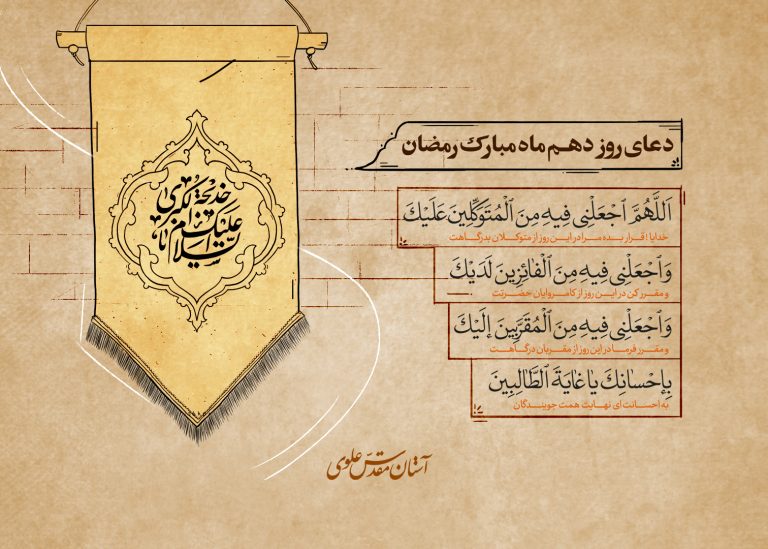 دعای روز دهم ماه مبارک رمضان
اَللّهُمَّ ٱجْعَلْنِي فِيهِ مِنَ ٱلْمُتَوَكِّلِينَ عَلَيْكَ
خدایا! قرار بده مرا در این روز از متوکلان بدرگاهت
وَٱجْعَلْنِي فِيهِ مِنَ ٱلْفائِزِينَ لَدَيْكَ
و مقرر کن در این روز از کامروایان حضرتت
وَٱجْعَلْنِي فِيهِ مِنَ ٱلْمُقَرَّبِينَ إلَيْكَ
و مقرر فرما در این روز از مقربان درگاهت
بِإحْسانِكَ يا غايَةَ ٱلطَّالِبِينَ
به احسانت ای نهایت همت جویندگان
السلام علیک یا خدیجة الکبری
آستان مقدس علوی